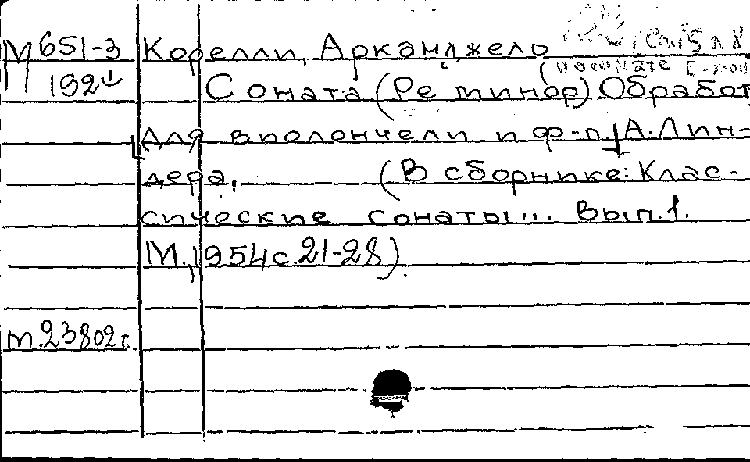 М651-3 Корелли, Арканджело
192 Соната (Ре минор) Обработ
для виолончели и ф-п. А.Лин-
дера. (В сборнике: Клас-
сические сонаты... Вып.1.
М.,1954 с 21-28).
м.23802г.